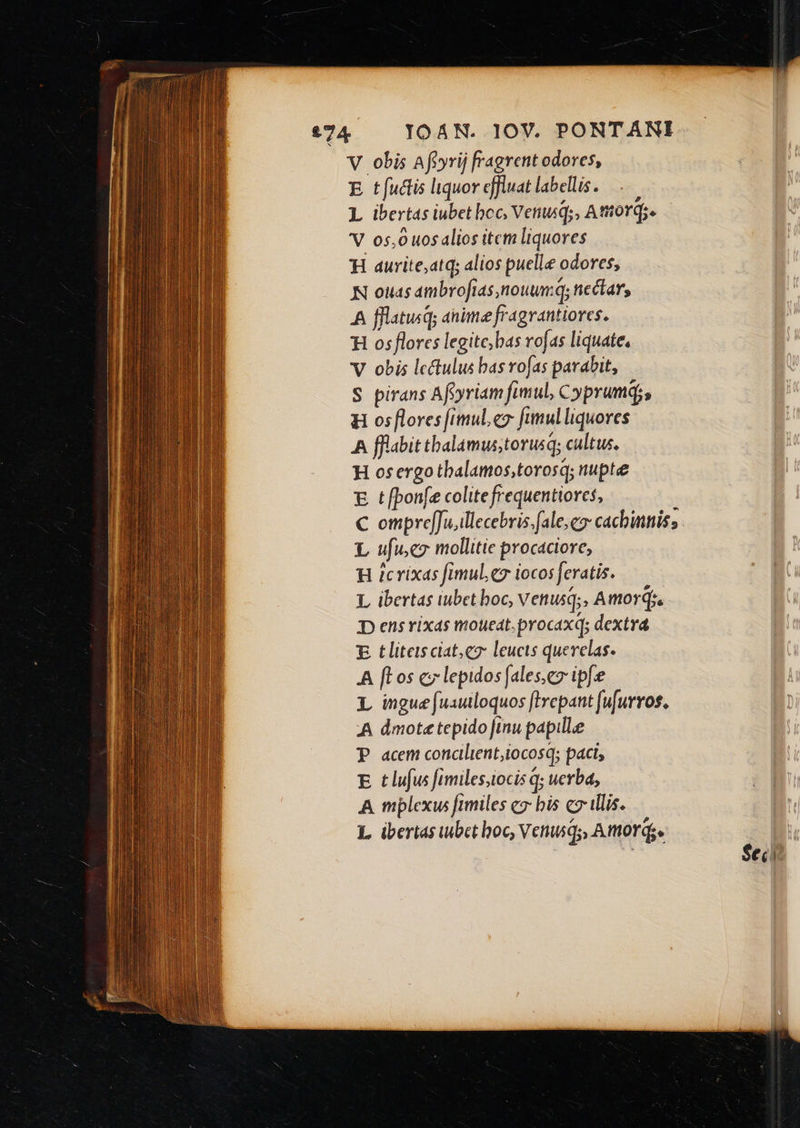 174 IOAN. IOV. PONTANI
V obis Aſsyrij fragrent odores,
E t ſuctis liquor effluat labellis.
L ibertas iubet hoc, Venusq;, Amorq;.
V os, ò uos alios item liquores
H aurite, atq; alios puellæ odores,
N ouas ambroſias, nouumq́; nectar,
A fflatusq́; animæ fragrantiores.
H os flores legite, has roſas liquate,
V obis lectulus has roſas parabit,
S pirans Aſsyriam ſimul, Cyprumq́;,
H os flores ſimul, & ſimul liquores
A fflabit thalamus, torusq́; cultus.
H os ergo thalamos, torosq́; nuptæ
E t ſponſæ colite frequentiores,
C ompreſſu, illecebris, ſale, & cachinnis,
L uſu, & mollitie procaciore,
H ic rixas ſimul, & iocos ſeratis.
L ibertas iubet hoc, Venusq́;, Amorq́;.
D ens rixas moueat, procaxq́; dextra
E t liteis ciat, & leueis querelas.
A ſt os & lepidos ſales, & ipſæ
L inguæ ſuauiloquos ſtrepant ſuſurros,
A dmotæ tepido ſinu papillæ
P acem concilient, iocosq́; paci,
E t luſus ſimiles, iocis q́; uerba,
A mplexus ſimiles & his & illis.
L ibertas iubet hoc, Venusq́;, Amorq́;.
Sed